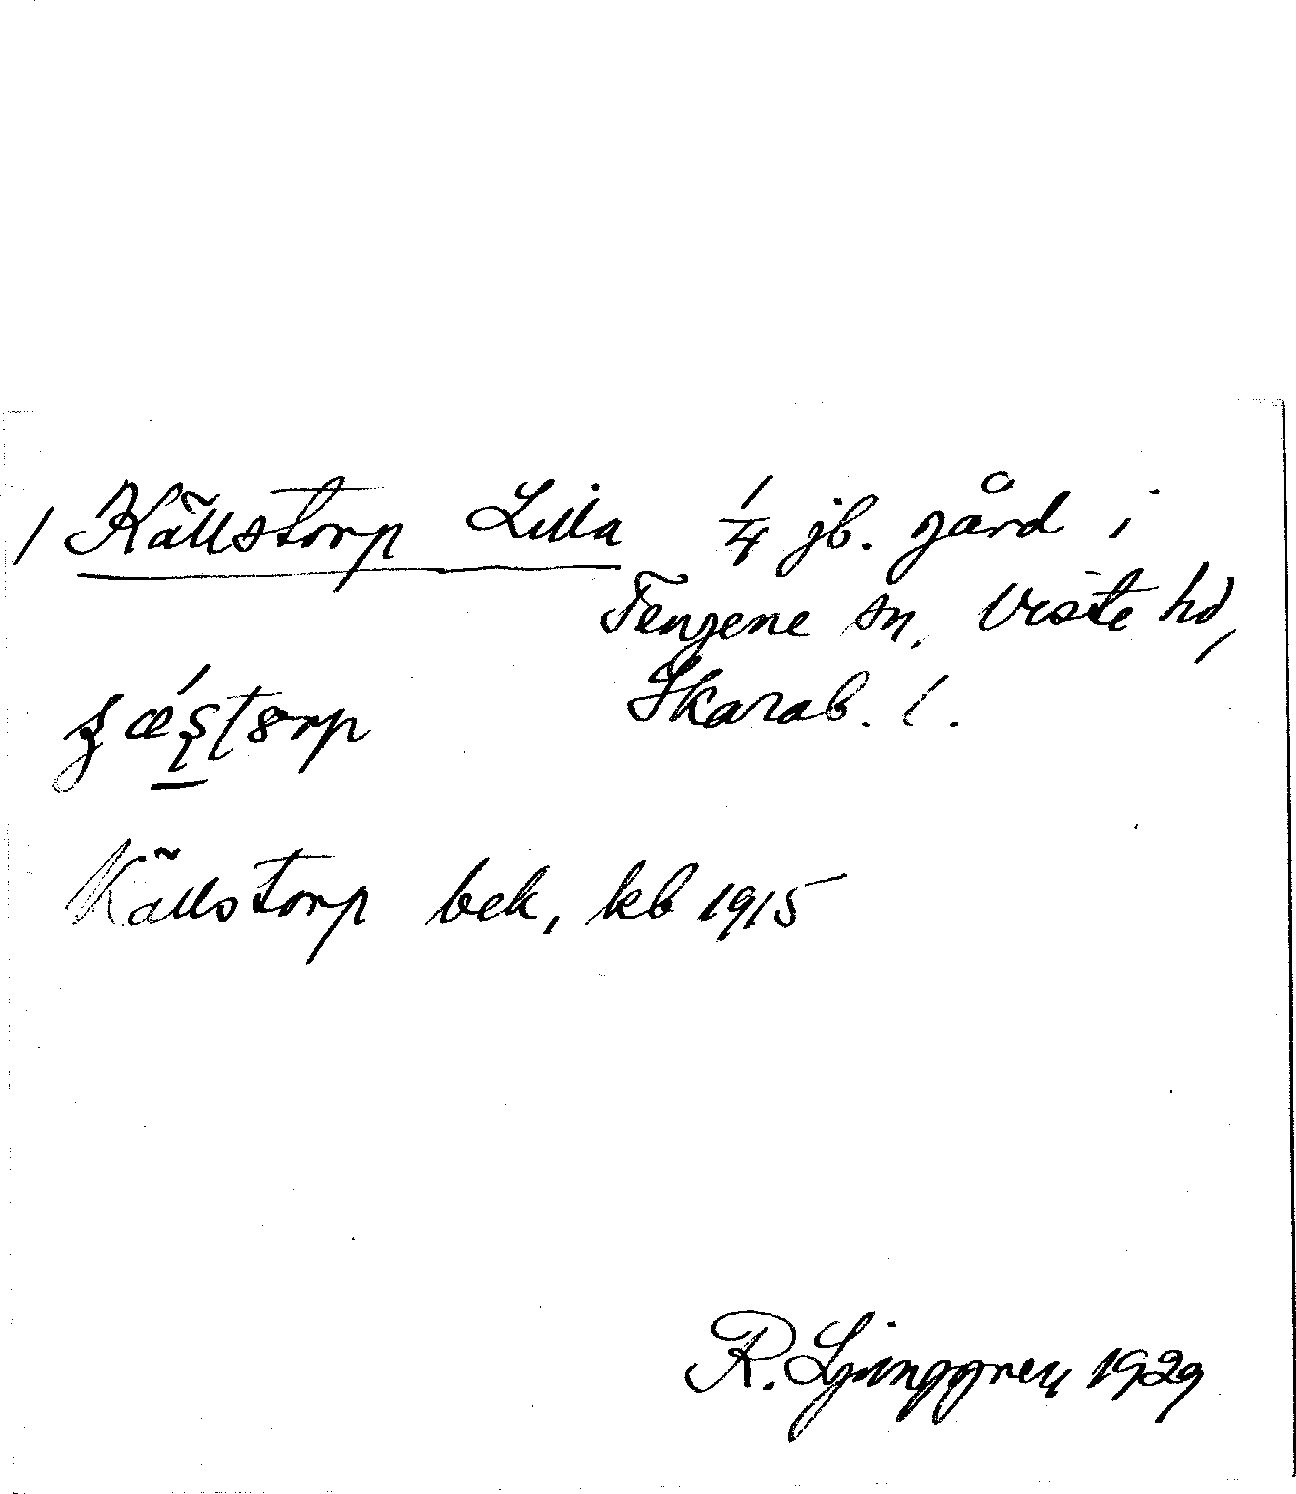 / Källstorp Lilla 1/4 jb. gård i
Tengene sn, Viste hd,
Skarab. l.
Källstorp bek, kb 1915
R. Ljunggren 1929